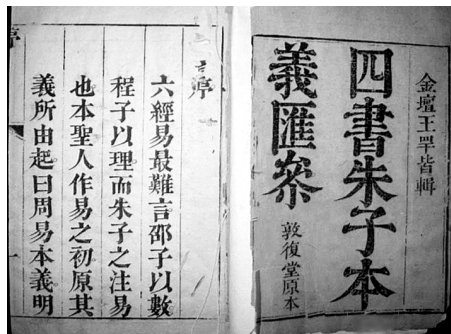 金壇王罕皆輯
四書朱子本
義匯參
敦復堂原本
序
六經易最難言邵子以數
程子以理而朱子之注易
也本聖人作易之初原其
義所由起曰周易本義明